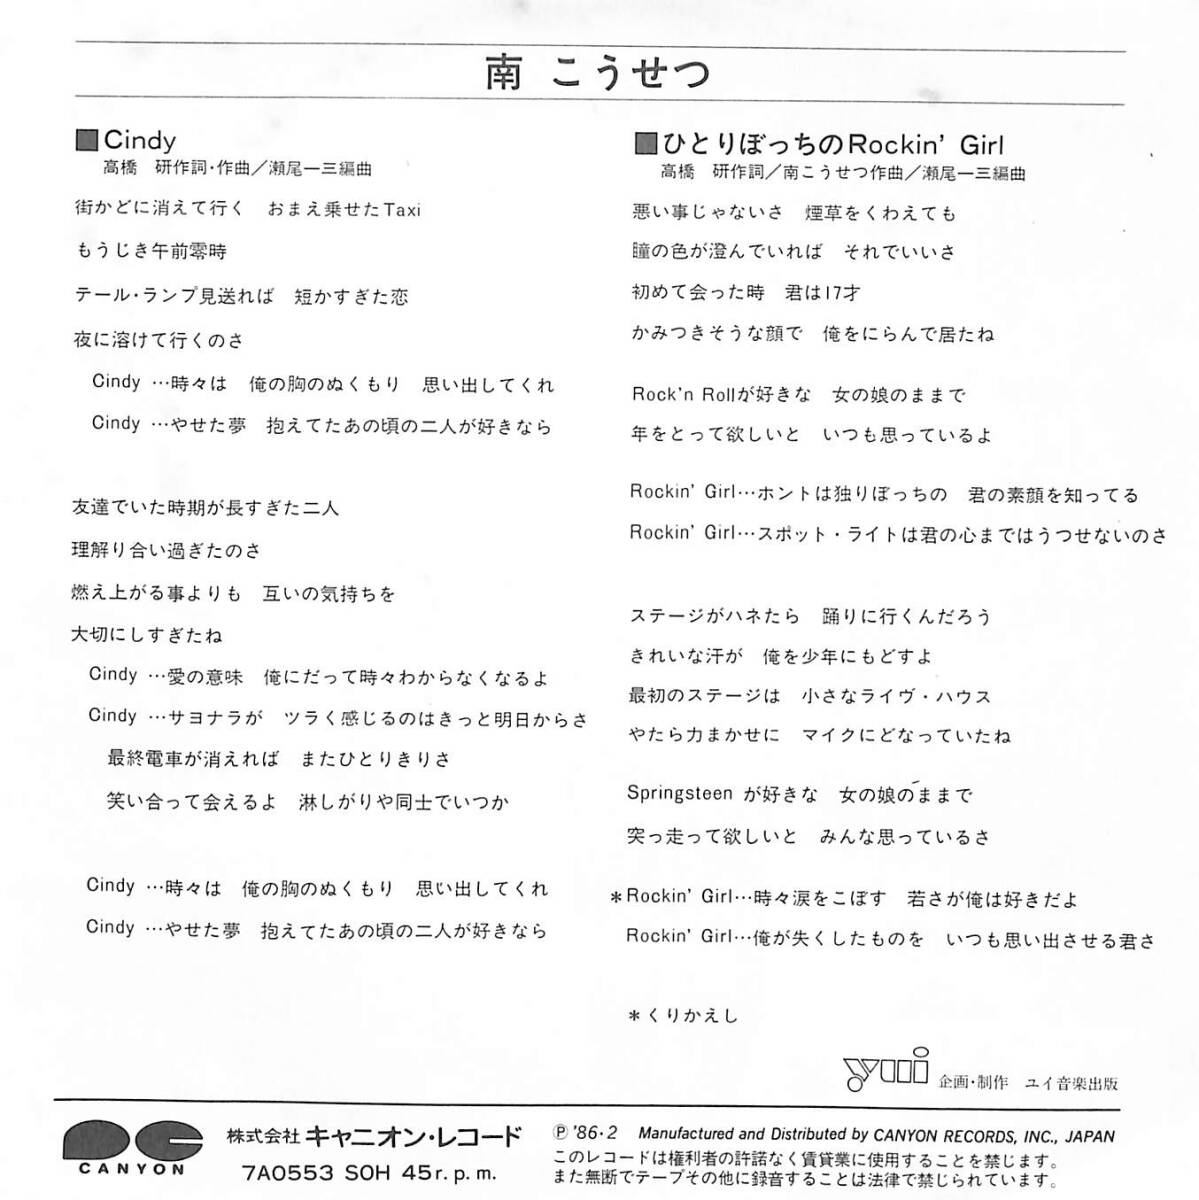 南 こうせつ
■Cindy
高橋 研作詞・作曲／瀬尾一三編曲
街かどに消えて行く おまえ乗せたTaxi
もうじき午前零時
テール・ランプ見送れば 短かすぎた恋
夜に溶けて行くのさ
Cindy …時々は 俺の胸のぬくもり 思い出してくれ
Cindy …やせた夢 抱えてたあの頃の二人が好きなら
友達でいた時期が長すぎた二人
理解り合い過ぎたのさ
燃え上がる事よりも 互いの気持ちを
大切にしすぎたね
Cindy …愛の意味 俺にだって時々わからなくなるよ
Cindy …サヨナラが ツラく感じるのはきっと明日からさ
最終電車が消えれば またひとりきりさ
笑い合って会えるよ 淋しがりや同士でいつか
Cindy …時々は 俺の胸のぬくもり 思い出してくれ
Cindy …やせた夢 抱えてたあの頃の二人が好きなら
■ひとりぼっちのRockin' Girl
高橋 研作詞／南こうせつ作曲／瀬尾一三編曲
悪い事じゃないさ 煙草をくわえても
瞳の色が澄んでいれば それでいいさ
初めて会った時 君は17才
かみつきそうな顔で 俺をにらんで居たね
Rock'n Rollが好きな 女の娘のままで
年をとって欲しいと いつも思っているよ
Rockin' Girl…ホントは独りぼっちの 君の素顔を知ってる
Rockin' Girl…スポット・ライトは君の心まではうつせないのさ
ステージがハネたら 踊りに行くんだろう
きれいな汗が 俺を少年にもどすよ
最初のステージは 小さなライヴ・ハウス
やたら力まかせに マイクにどなっていたね
Springsteen が好きな 女の娘のままで
突っ走って欲しいと みんな思っているさ
＊Rockin' Girl…時々涙をこぼす 若さが俺は好きだよ
Rockin' Girl…俺が失くしたものを いつも思い出させる君さ
＊くりかえし
yui 企画・制作 ユイ音楽出版
CANYON
株式会社 キャニオン・レコード
7A0553 SOH 45r.p.m.
Ⓟ'86・2 Manufactured and Distributed by CANYON RECORDS, INC., JAPAN
このレコードは権利者の許諾なく賃貸業に使用することを禁じます。
また無断でテープその他に録音することは法律で禁じられています。